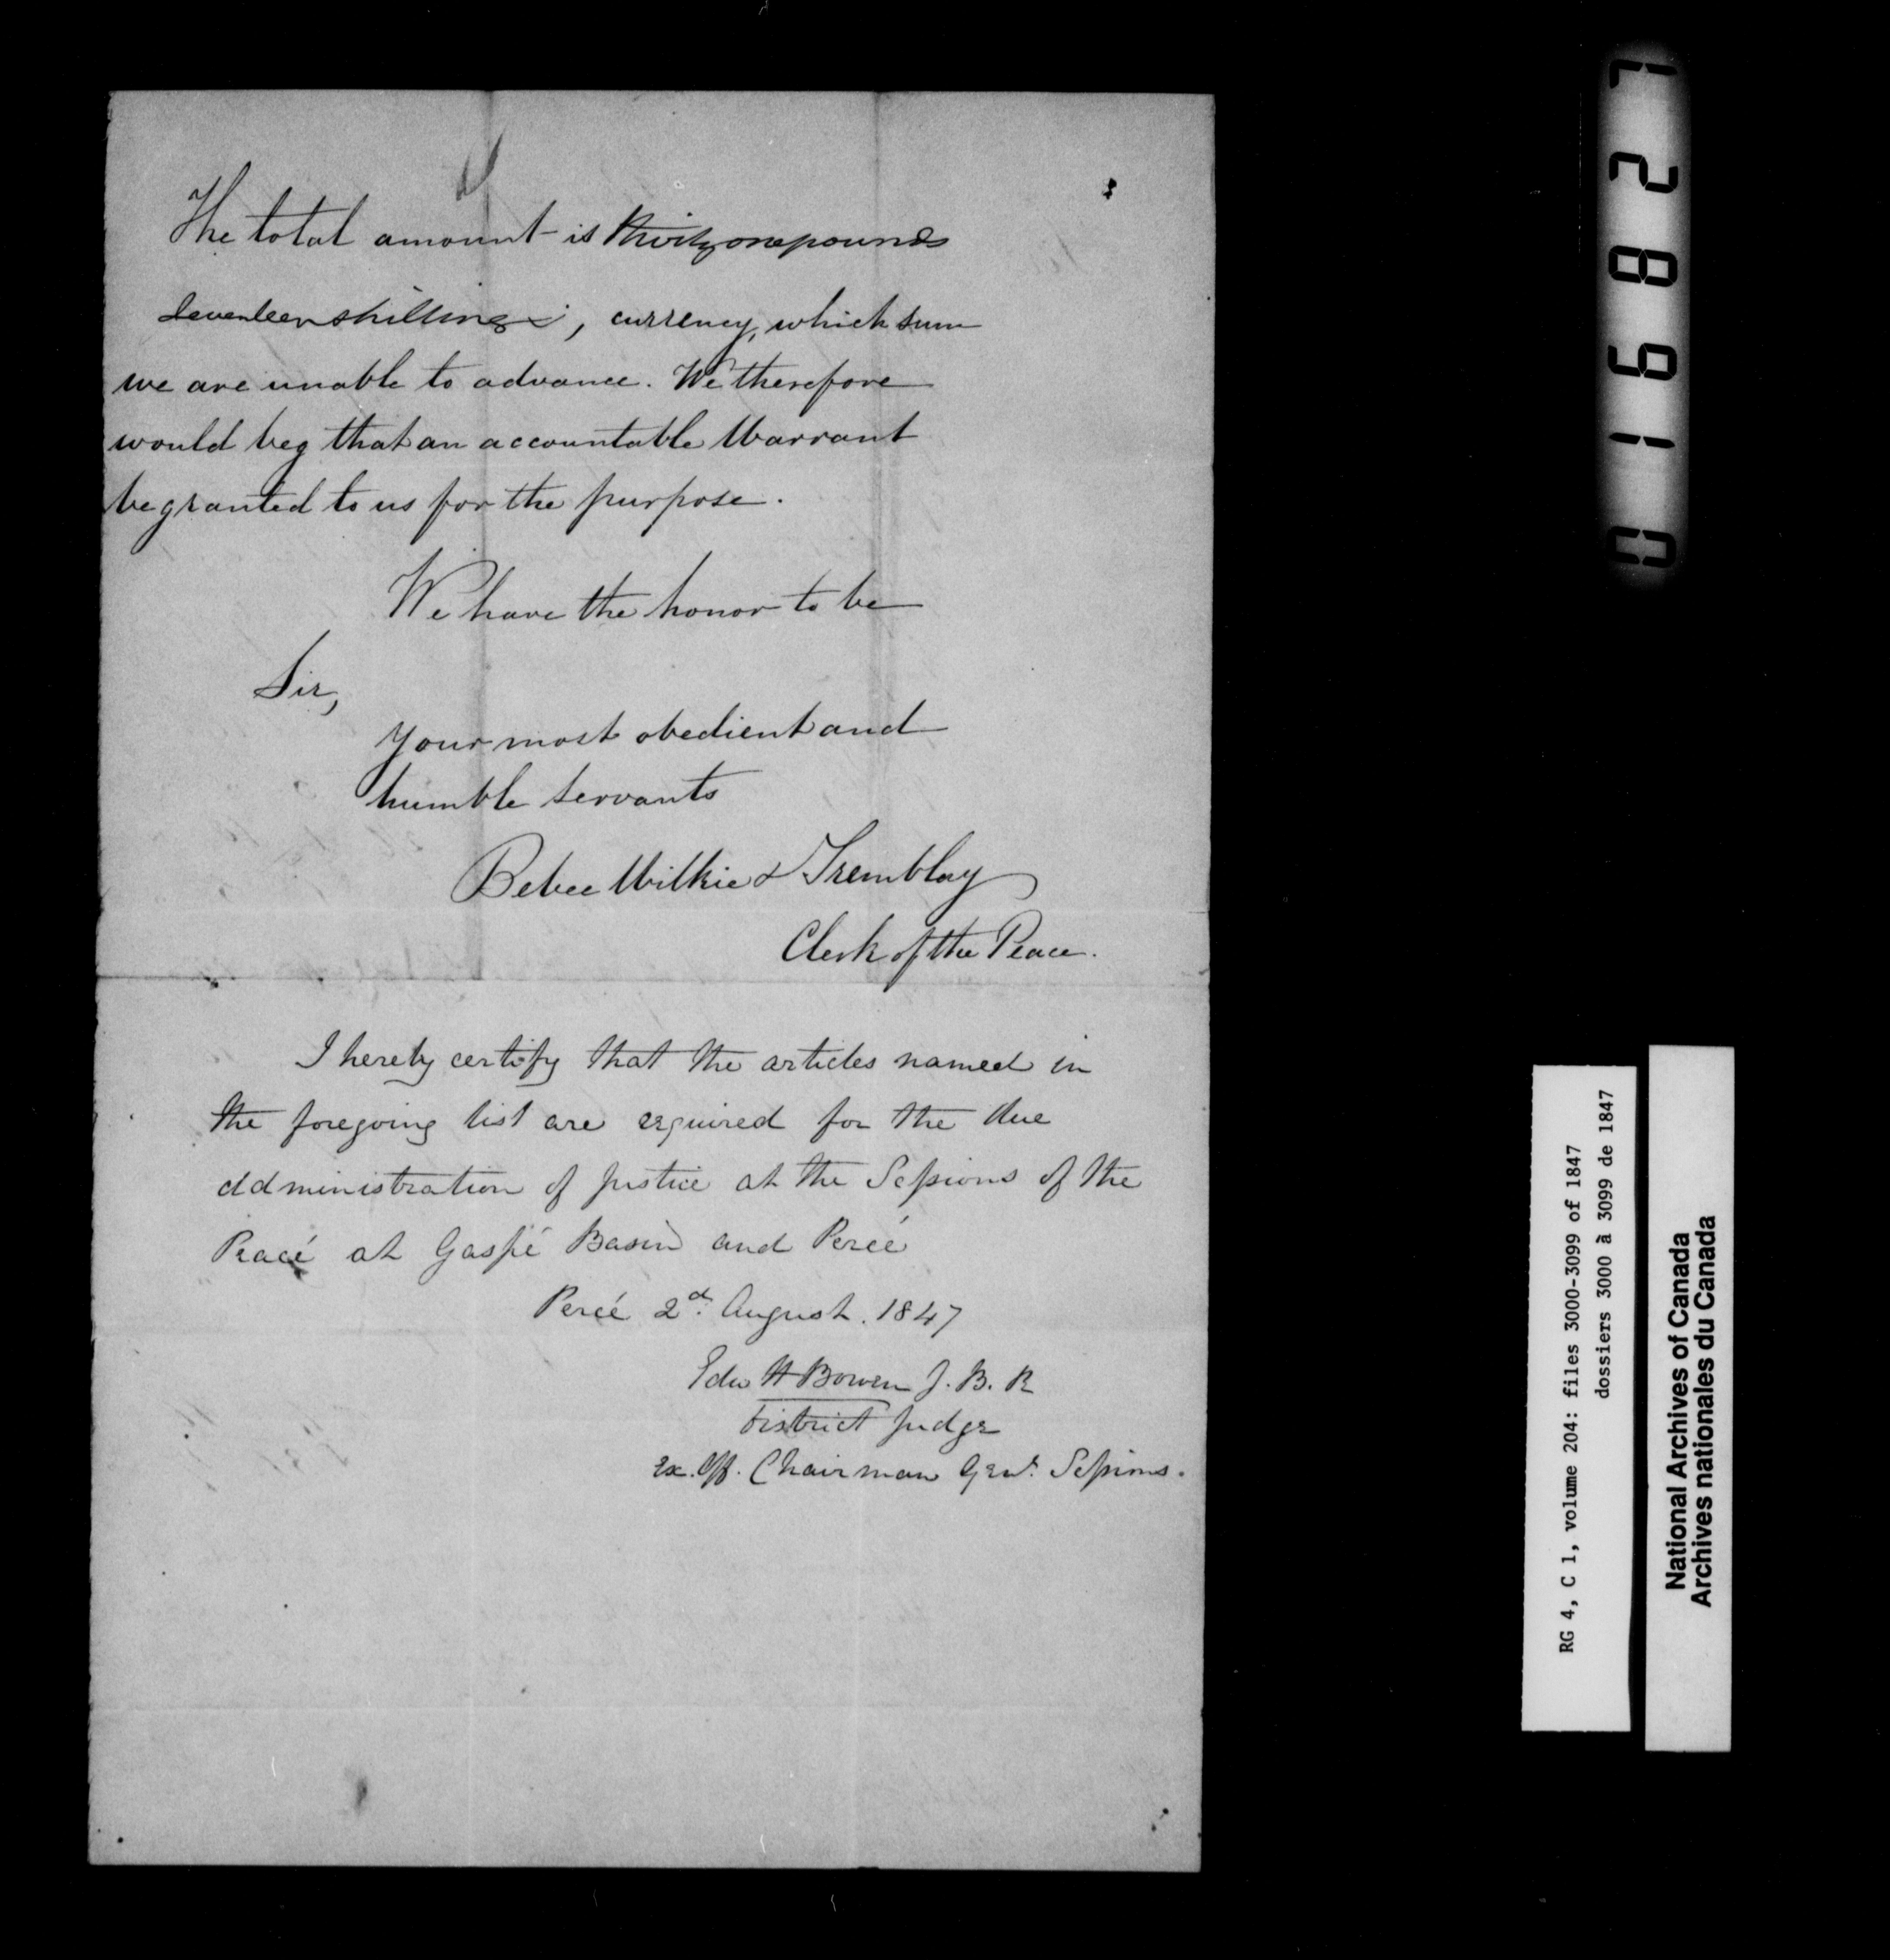 The total amount is thirty one pounds
seventeen shillings, currency, which sum
we are unable to advance. We therefore
would beg that an accountable Warrant
be granted to us for the purpose.
We have the honor to be
Sir,
Your most obedient and
humble servants
Bebee Wilkie & Tremblay
Clerk of the Peace.
I hereby certify that the articles named in
the foregoing list are required for the due
administration of Justice at the Sessions of the
Peace at Gaspé Basin and Percé
Percé 2d. August. 1847
Edw H Bowen J. B. R
District Judge
Ex. Off. Chairman Genl. Sessions.
016827
RG 4, C 1, volume 204: files 3000-3099 of 1847
dossiers 3000 à 3099 de 1847
National Archives of Canada
Archives nationales du Canada